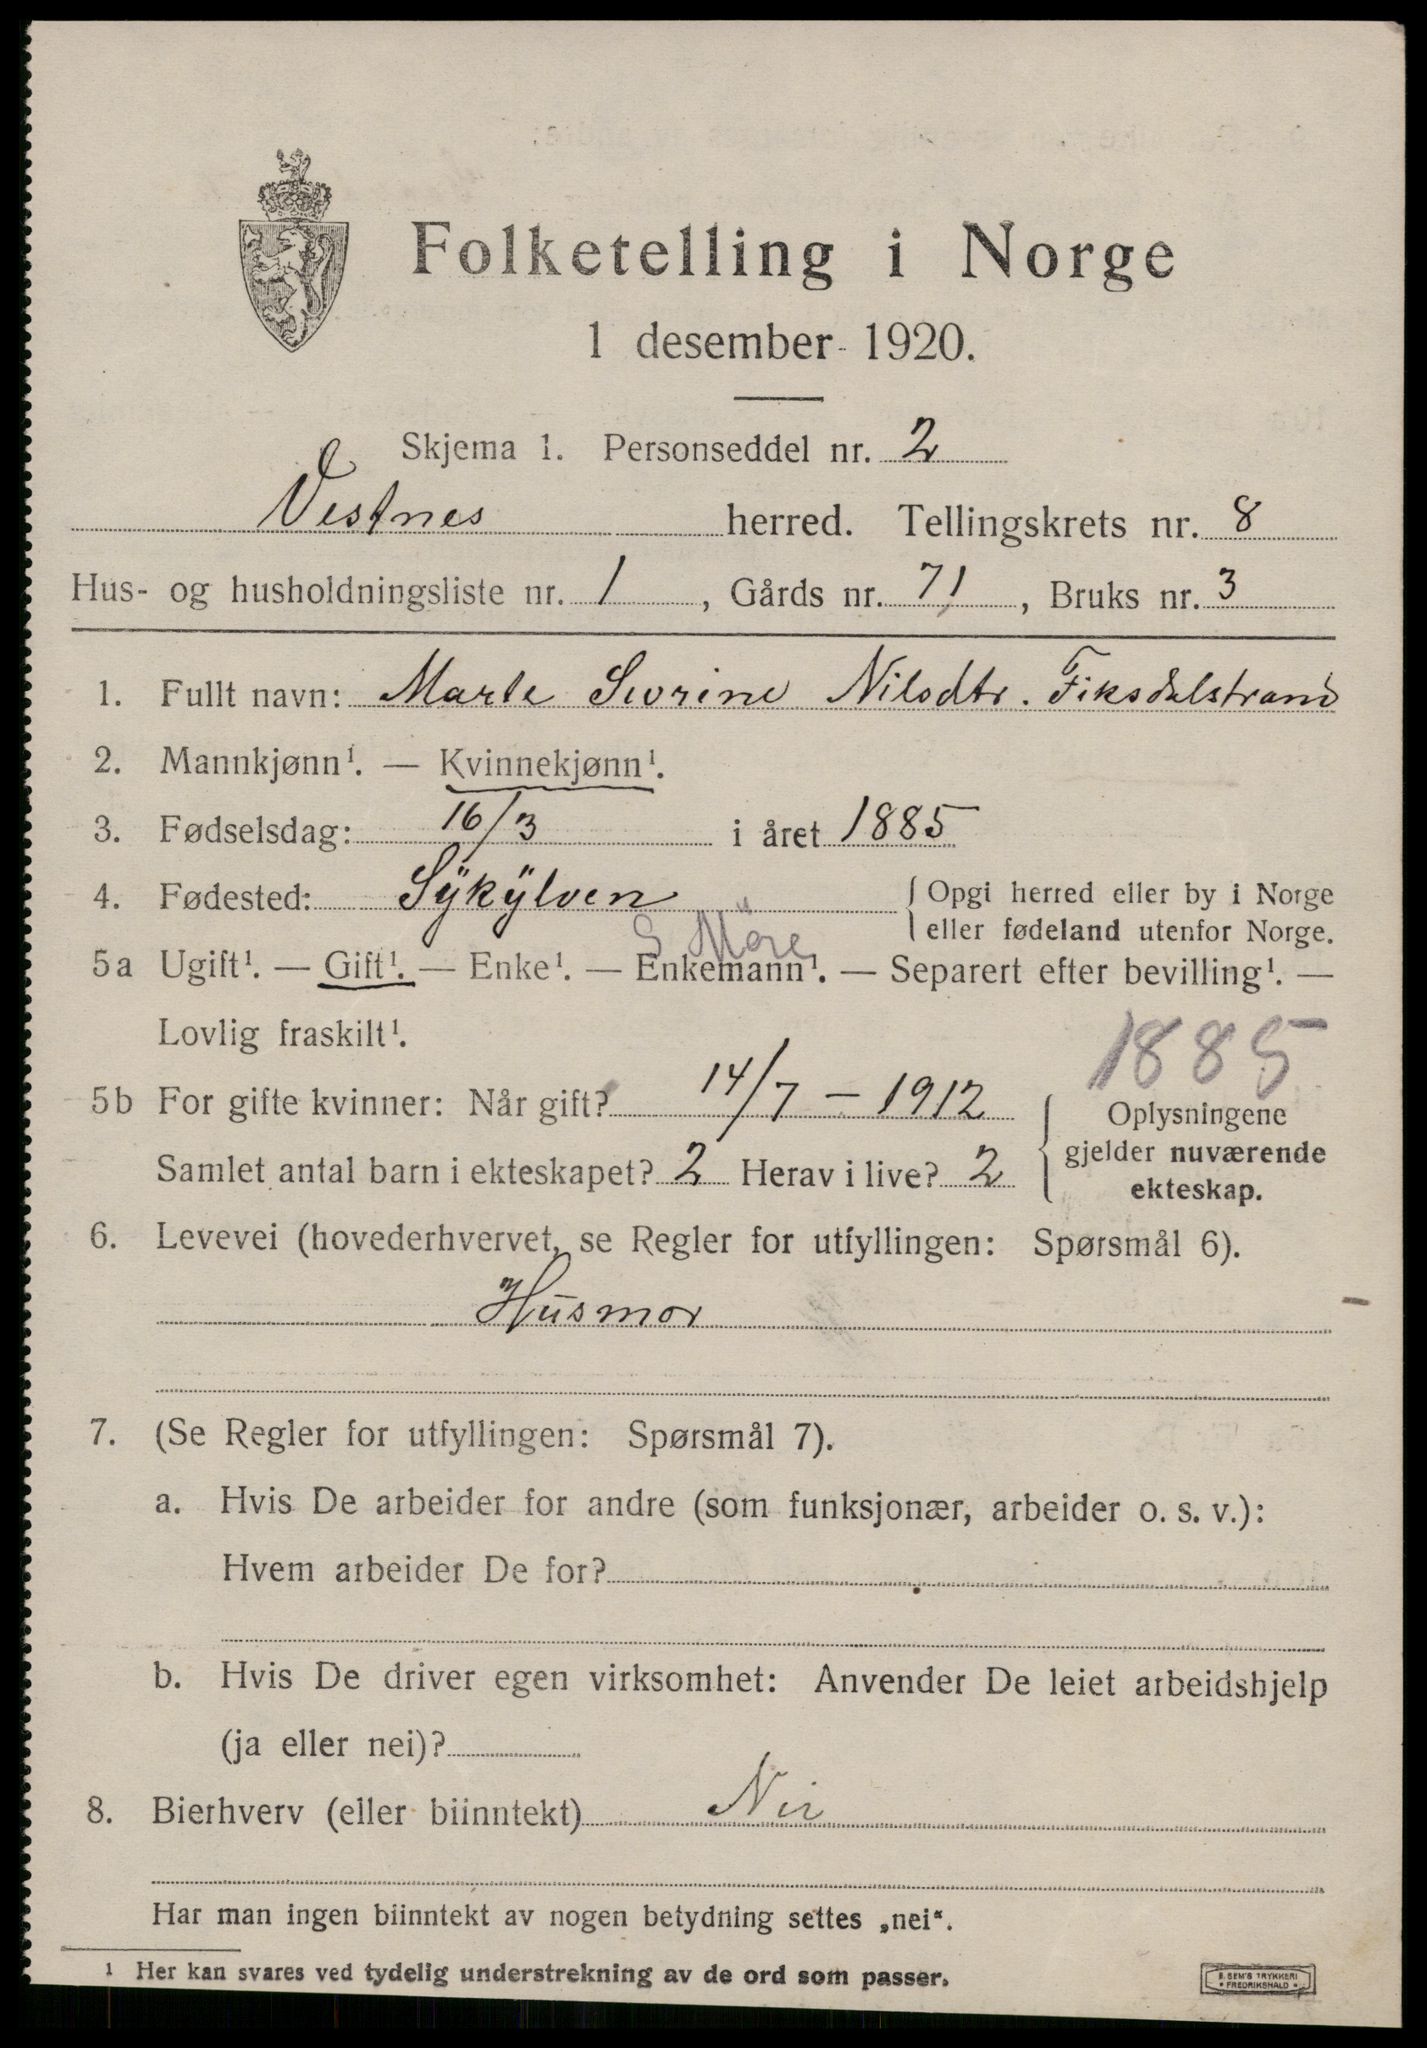 Folketelling i Norge
1 desember 1920.
Skjema 1. Personseddel nr. 2
Vestnes herred. Tellingskrets nr. 8
Hus- og husholdningsliste nr. 1, Gårds nr. 71, Bruks nr. 3
1. Fullt navn: Marte Sevrine Nilsdtr. Fiksdalstrand
2. Mannkjønn¹. — Kvinnekjønn¹.
3. Fødselsdag: 16/3 i året 1885
4. Fødested: Sÿkÿlven { Opgi herred eller by i Norge
eller fødeland utenfor Norge.
S. Möre
5a Ugift¹. — Gift¹. — Enke¹. — Enkemann¹. — Separert efter bevilling¹. —
Lovlig fraskilt¹.
1885
5b For gifte kvinner: Når gift? 14/7 – 1912
Samlet antal barn i ekteskapet? 2 Herav i live? 2
{ Oplysningene
gjelder nuværende
ekteskap.
6. Levevei (hovederhvervet, se Regler for utfyllingen: Spørsmål 6).
Husmor
7. (Se Regler for utfyllingen: Spørsmål 7).
a. Hvis De arbeider for andre (som funksjonær, arbeider o. s. v.):
Hvem arbeider De for?
b. Hvis De driver egen virksomhet: Anvender De leiet arbeidshjelp
(ja eller nei)?
8. Bierhverv (eller biinntekt) Nei
Har man ingen biinntekt av nogen betydning settes „nei“.
¹ Her kan svares ved tydelig understrekning av de ord som passer.
E. SEM'S TRYKKERI
• FREDRIKSHALD •